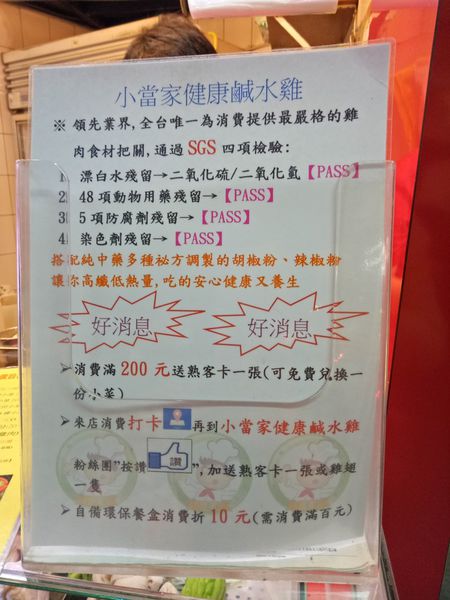 小當家健康鹹水雞
※ 領先業界,全台唯一為消費提供最嚴格的雞
肉食材把關,通過 SGS 四項檢驗:
1 漂白水殘留→二氧化硫/二氧化氫【PASS】
2 48 項動物用藥殘留→【PASS】
3 5 項防腐劑殘留→【PASS】
4 染色劑殘留→【PASS】
搭配純中藥多種祕方調製的胡椒粉、辣椒粉
讓你高纖低熱量,吃的安心健康又養生
好消息 好消息
➢消費滿 200 元送熟客卡一張(可免費兌換一
份小菜)
➢來店消費打卡 再到小當家健康鹹水雞
粉絲團"按讚 讚",加送熟客卡一張或雞翅
一隻
➢自備環保餐盒消費折 10 元(需消費滿百元)